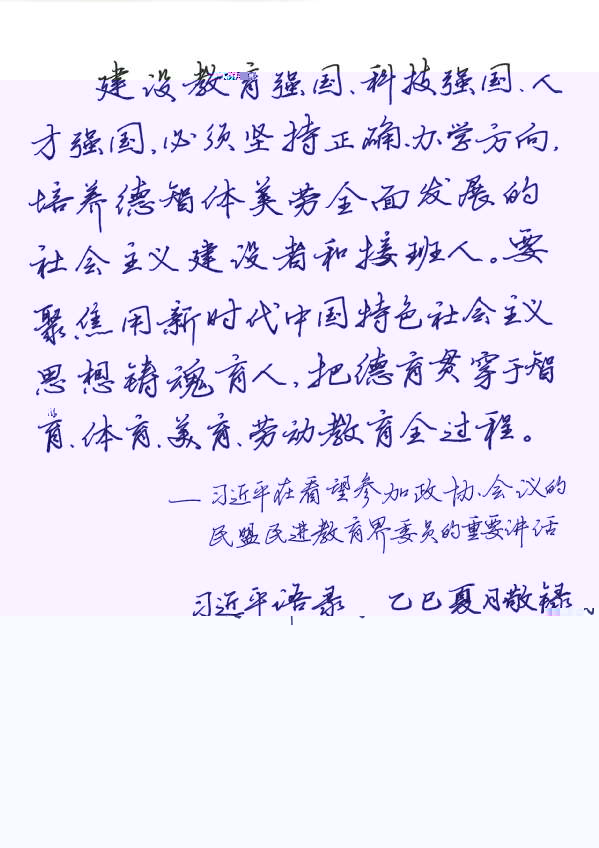 建设教育强国、科技强国、人
才强国,必须坚持正确办学方向,
培养德智体美劳全面发展的
社会主义建设者和接班人。要
聚焦用新时代中国特色社会主义
思想铸魂育人,把德育贯穿于智
育、体育、美育、劳动教育全过程。
——习近平在看望参加政协会议的
民盟民进教育界委员的重要讲话
习近平语录、乙巳夏月敬录